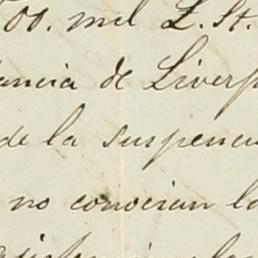 00. mil L. St.
tancia de Liverp
de la suspenci
no conocian la